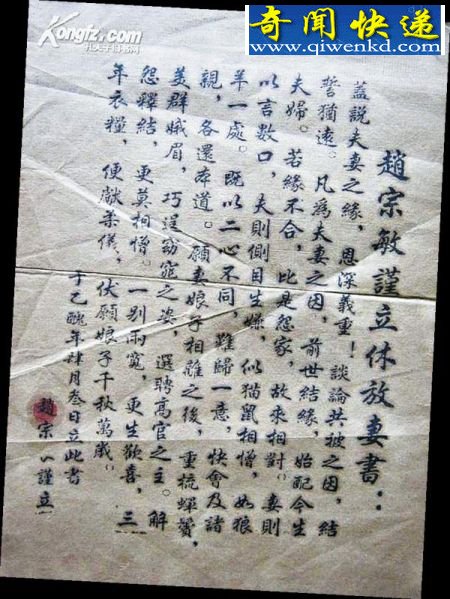 Kongfz.com
孔夫子旧书网
奇闻快递
www.qiwenkd.com
趙宗敏謹立休放妻書：
蓋説夫妻之緣，恩深義重！談論共被之因，結
誓猶遠。凡為夫妻之因，前世結緣，始配今生
夫婦。若緣不合，比是怨家，故來相對。妻則
以言數口，夫則側目生嫌，似猫鼠相憎，如狼
羊一處。既以二心不同，難歸一意，快會及諸
親，各還本道。願妻娘子相離之後，重梳蟬鬢，
美群娥眉，巧逞窈窕之姿，選聘高官之主。解
怨釋結，更莫相憎。一别兩寬，更生歡喜，三
年衣糧，便獻柔儀，伏願娘子千秋萬歲。
于乙醜年肆月叁日立此書
趙宗 謹立